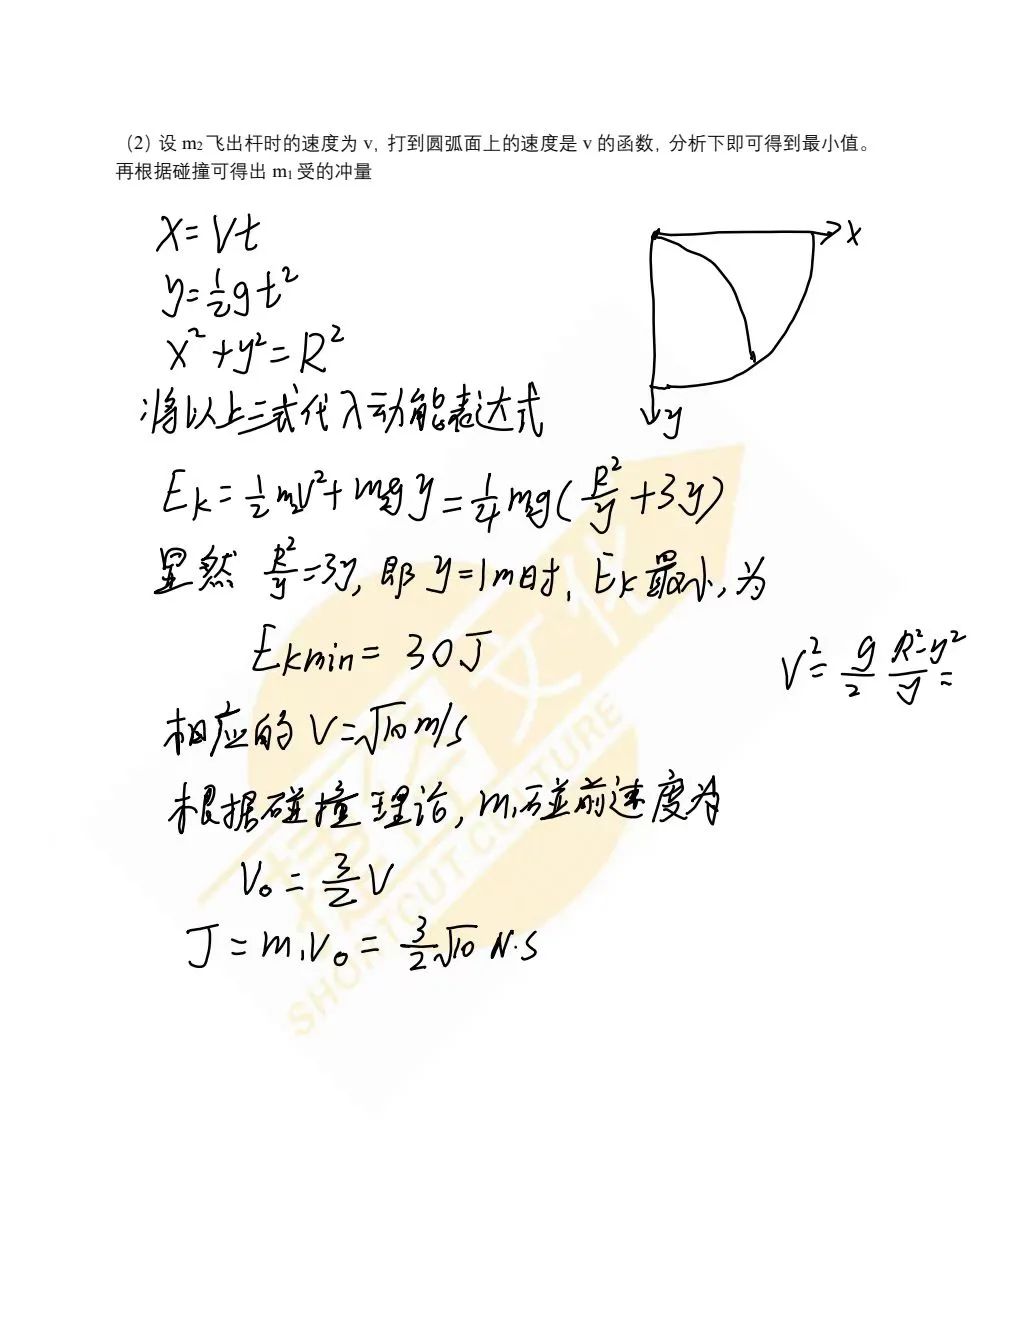 （2）设 m₂ 飞出杆时的速度为 v，打到圆弧面上的速度是 v 的函数，分析下即可得到最小值。
再根据碰撞可得出 m₁ 受的冲量
x = vt
y = 1/2 gt²
x² + y² = R²
将以上三式代入动能表达式
x
y
Ek = 1/2 m₂v² + m₂gy = 1/4 m₂g(R²/y + 3y)
显然 R²/y = 3y, 即 y = 1m时, Ek最小, 为
Ekmin = 30J
v² = g/2 R²-y²/y =
相应的 v = √10 m/s
根据碰撞理论, m₁碰前速度为
v₀ = 3/2 v
J = m₁v₀ = 3/2 √10 N·s
SHORTCUT CULTURE